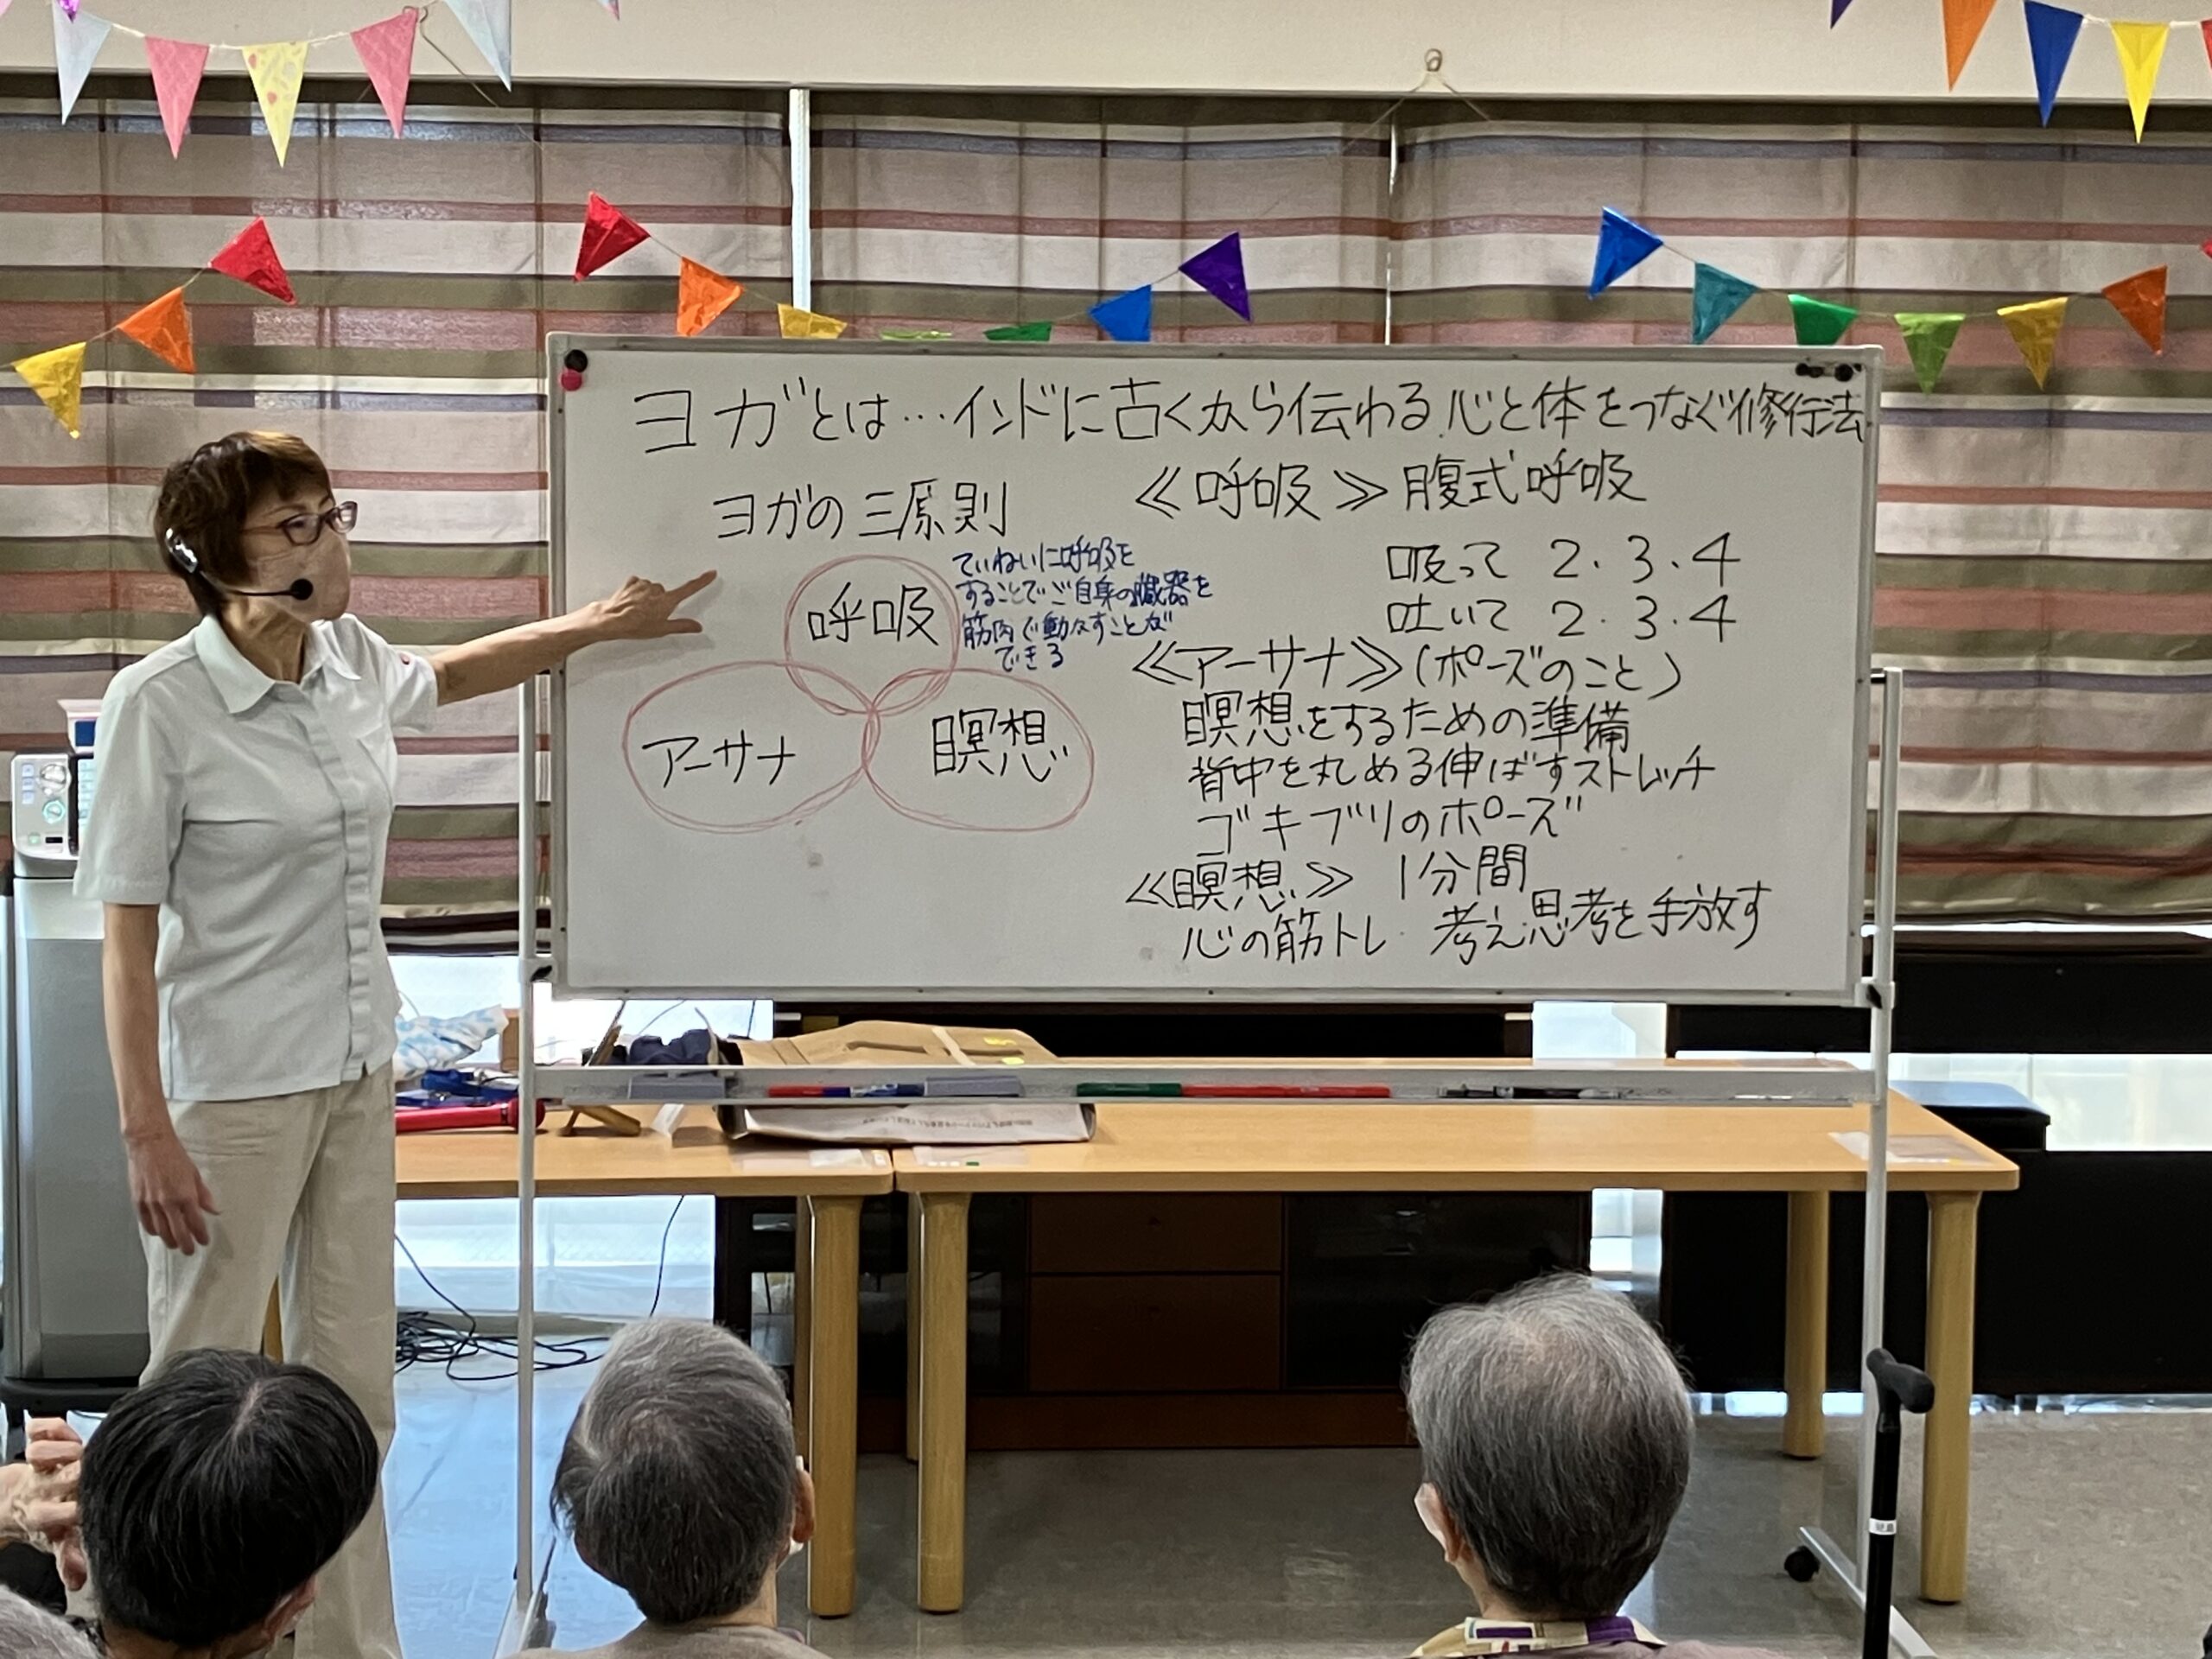 ヨガとは…インドに古くから伝わる心と体をつなぐ修行法
ヨガの三原則
呼吸
ていねいに呼吸を
することでご自身の臓器を
筋肉で動かすことが
できる
アーサナ
瞑想
≪呼吸≫腹式呼吸
吸って 2.3.4
吐いて 2.3.4
≪アーサナ≫(ポーズのこと)
瞑想をするための準備
背中を丸める伸ばすストレッチ
ゴキブリのポーズ
≪瞑想≫ 1分間
心の筋トレ 考え思考を手放す